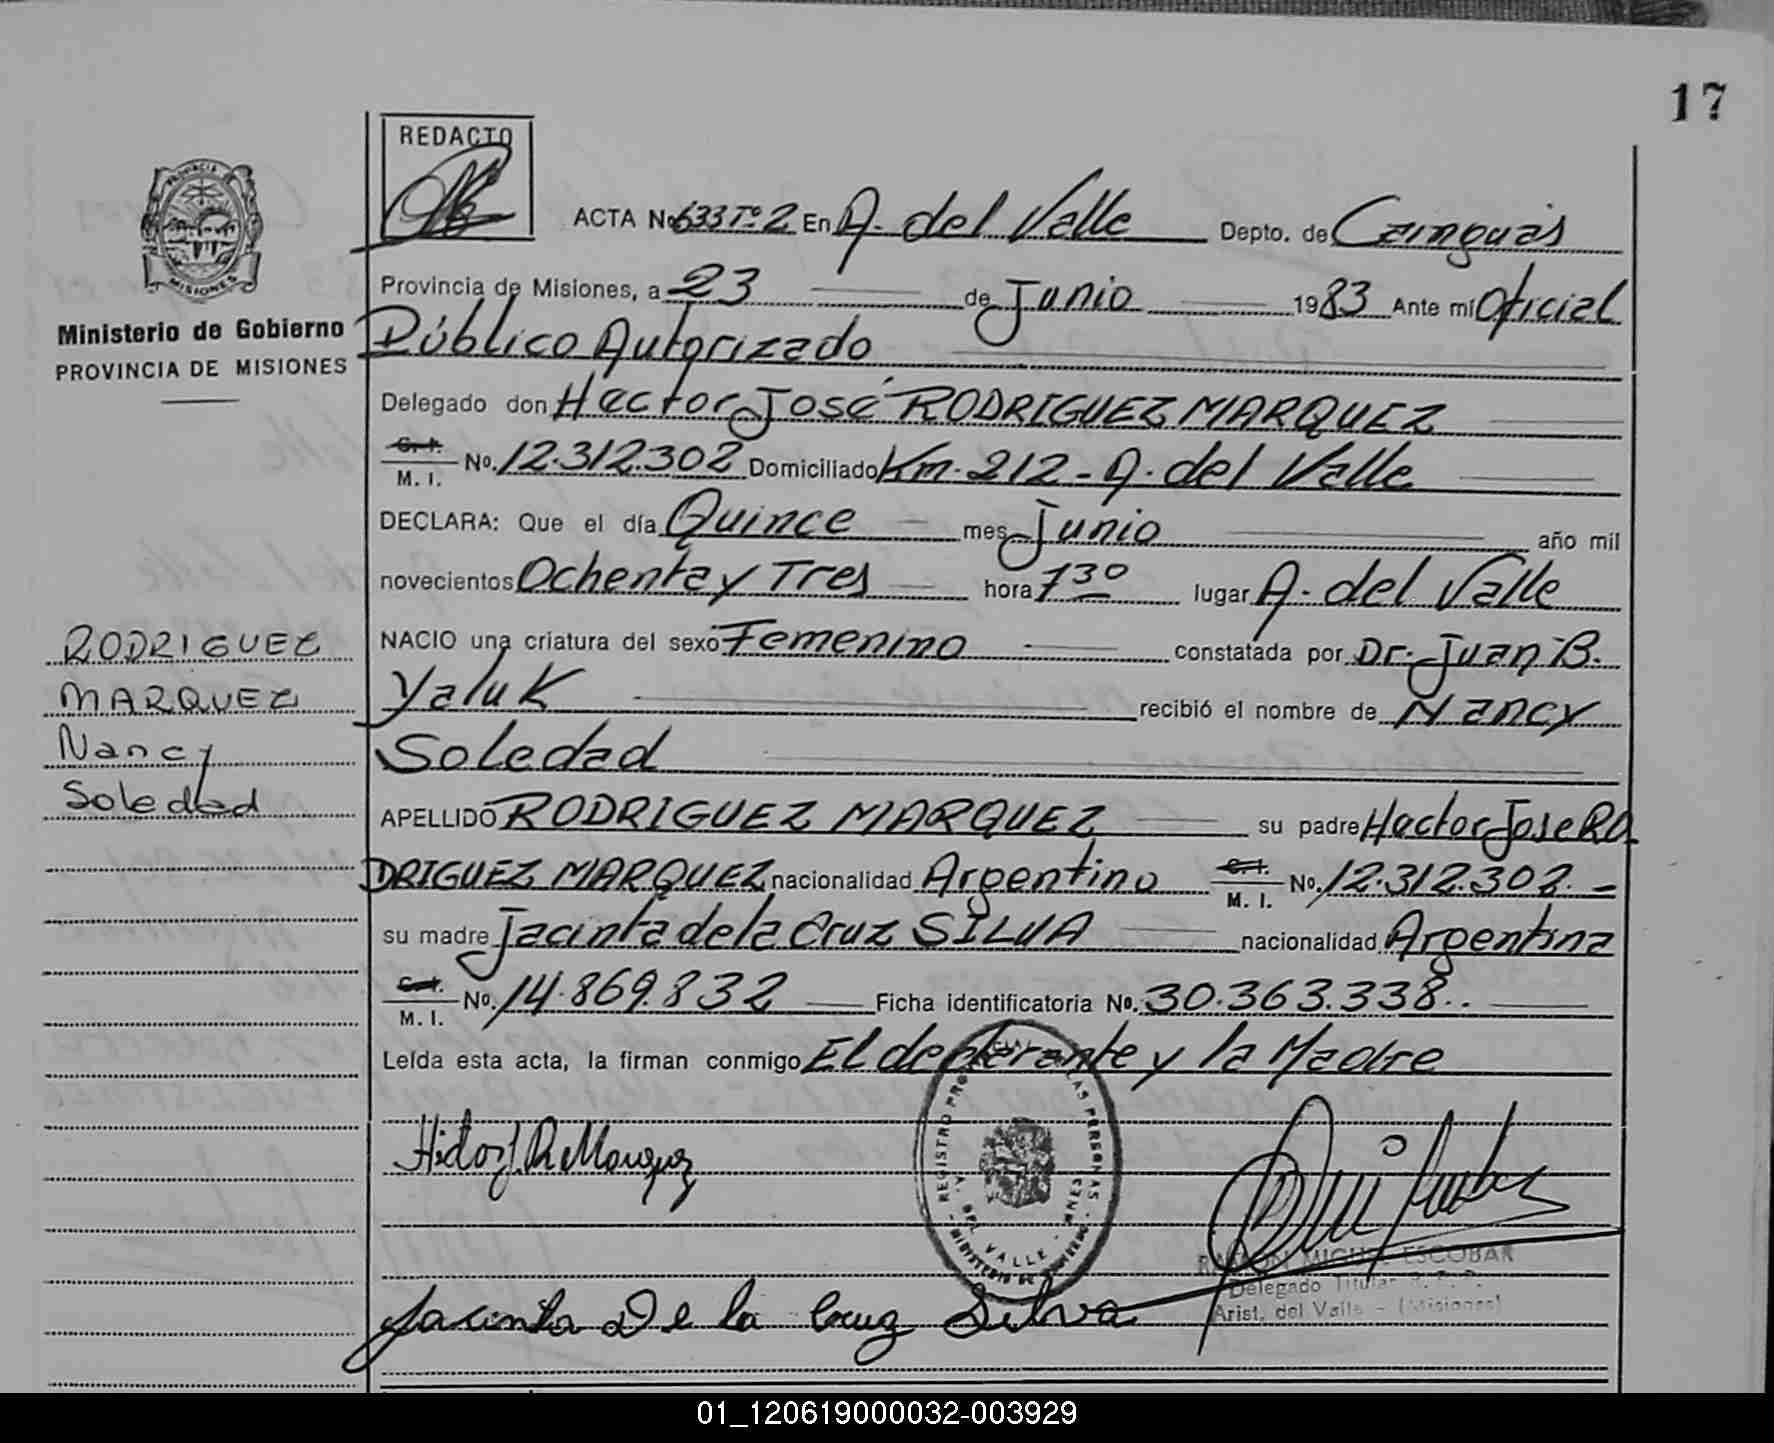 17
REDACTO
ACTA No 633 Tº 2 En A. del Valle Depto. de Cainguás
Provincia de Misiones, a 23 de Junio 1983 Ante mi Oficial
Ministerio de Gobierno
PROVINCIA DE MISIONES
Público Autorizado
Delegado don Hector José RODRIGUEZ MARQUEZ
C. I. M. I. No. 12.312.302 Domiciliado Km. 212 - A. del Valle
DECLARA: Que el día Quince mes Junio año mil
novecientos Ochenta y Tres hora 7 30 lugar A. del Valle
NACIO una criatura del sexo Femenino constatada por Dr. Juan B.
Yaluk recibió el nombre de Nancy
Soledad
RODRIGUEZ
MARQUEZ
Nancy
Soledad
APELLIDO RODRIGUEZ MARQUEZ su padre Hector Jose RO
DRIGUEZ MARQUEZ nacionalidad Argentino C. I. M. I. No. 12.312.302.-
su madre Jacinta de la Cruz SILVA nacionalidad Argentina
C. I. M. I. No. 14.869.832 Ficha identificatoria No. 30.363.338..
Leída esta acta, la firman conmigo El declarante y la Madre
REGISTRO PROVINCIAL DE LAS PERSONAS
A. DEL VALLE - MNES
MINISTERIO DE GOBIERNO
RAMON MIGUEL ESCOBAR
Delegado Titular R. P. P.
Arist. del Valle - (Misiones)
Jacinta De la Cruz Silva
01_120619000032-003929